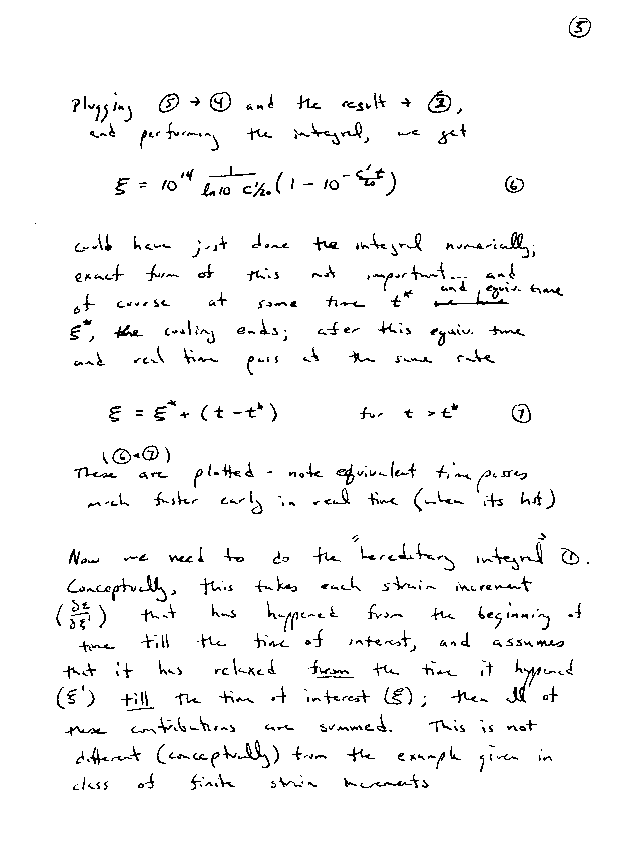 ⑤
Plugging ⑤ → ④ and the result → ②,
and performing the integral, we get
ξ = 10^14 1/(ln10 c'/20) (1 − 10^(−c't/20)) ⑥
could have just done the integral numerically;
exact form of this not important... and
of course at some time t* and equiv. time
ξ*, the cooling ends; afer this equiv. time
and real time pass at the same rate
ξ = ξ* + (t − t*) for t > t* ⑦
(⑥+⑦)
These are plotted - note equivalent time passes
much faster early in real time (when its hot)
Now we need to do the "hereditary integral" ①.
Conceptually, this takes each strain increment
(∂ε/∂ξ') that has happened from the beginning of
time till the time of interest, and assumes
that it has relaxed from the time it hyppened
(ξ') till the time of interest (ξ); then all of
these contributions are summed. This is not
different (conceptually) from the example given in
class of finite strain increments